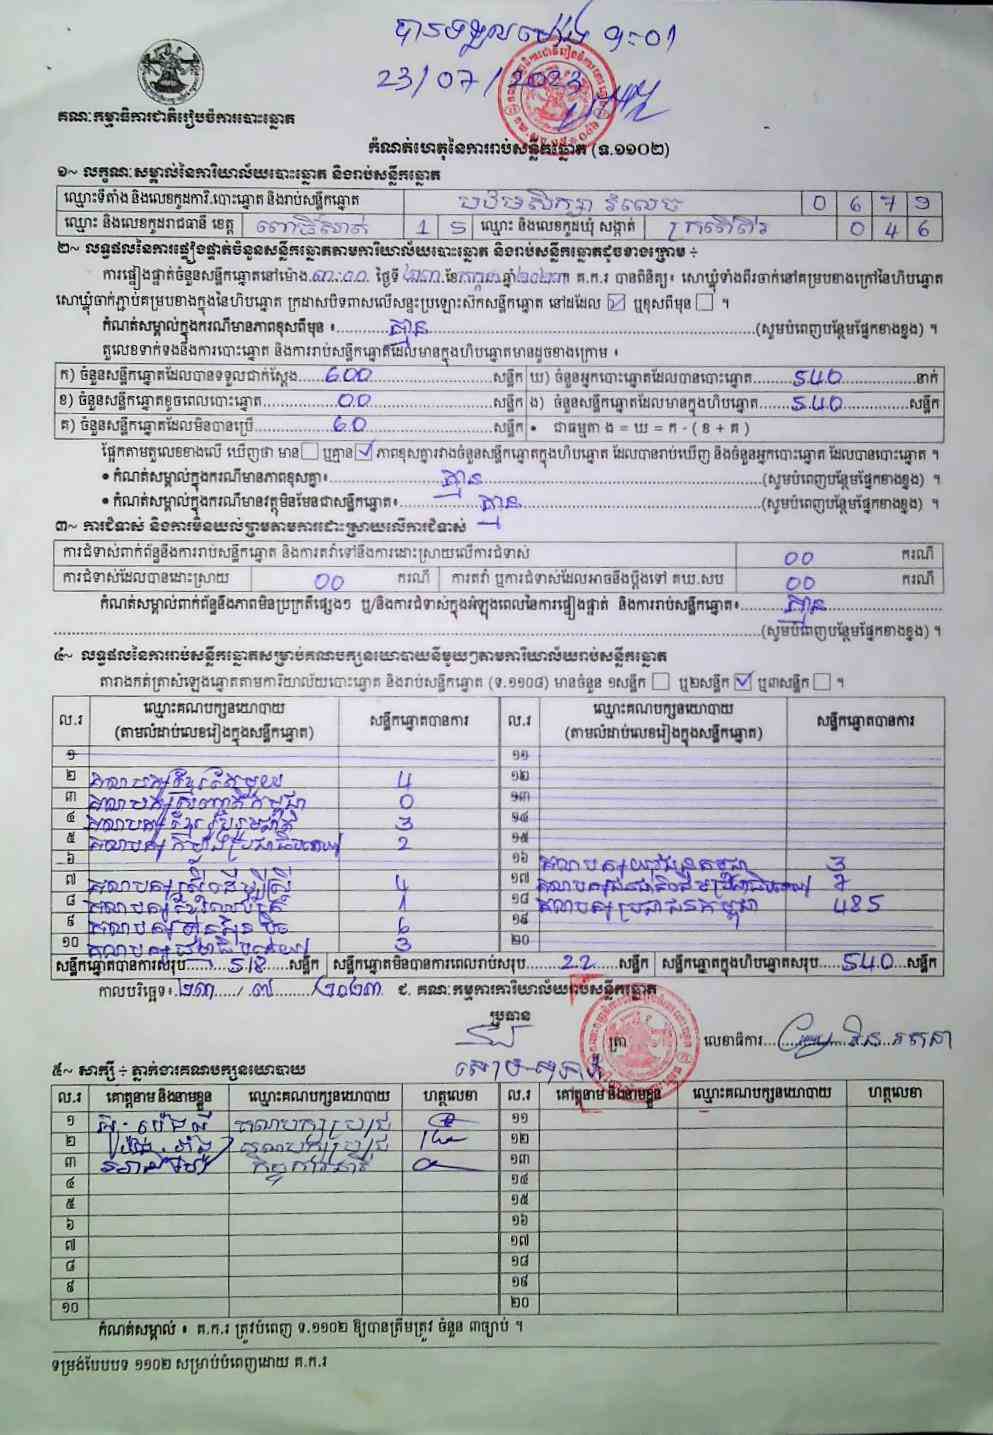 បានទទួលម៉ោង 9:01
23/07/2023
គណៈកម្មាធិការជាតិរៀបចំការបោះឆ្នោត
កំណត់ហេតុនៃការរាប់សន្លឹកឆ្នោត (ទ.១១០២)
១~ លក្ខណៈសម្គាល់នៃការិយាល័យបោះឆ្នោត និងរាប់សន្លឹកឆ្នោត
ឈ្មោះទីតាំង និងលេខកូដការិ.បោះឆ្នោត និងរាប់សន្លឹកឆ្នោត 0 6 7 9
ឈ្មោះ និងលេខកូដរាជធានី ខេត្ត ពោធិ៍សាត់ 1 5 ឈ្មោះ និងលេខកូដឃុំ សង្កាត់ 0 4 6
២~ លទ្ធផលនៃការផ្ទៀងផ្ទាត់ចំនួនសន្លឹកឆ្នោតតាមការិយាល័យបោះឆ្នោត និងរាប់សន្លឹកឆ្នោតដូចខាងក្រោម ÷
ការផ្ទៀងផ្ទាត់ចំនួនសន្លឹកឆ្នោតនៅម៉ោង ៣:០០ ថ្ងៃទី ២៣ ខែ កក្កដា ឆ្នាំ ២០២៣ គ.ក.រ បានពិនិត្យ៖ សោឃ្មុំទាំងពីរចាក់នៅគម្របខាងក្រៅនៃហិបឆ្នោត
សោឃ្មុំចាក់ភ្ជាប់គម្របខាងក្នុងនៃហិបឆ្នោត ក្រដាសបិទពាសលើសន្ទះប្រឡោះស៊កសន្លឹកឆ្នោត នៅដដែល ☑ ឬខុសពីមុន ☐ ។
កំណត់សម្គាល់ក្នុងករណីមានភាពខុសពីមុន ៖ គ្មាន (សូមបំពេញបន្ថែមផ្នែកខាងខ្នង) ។
តួលេខទាក់ទងនឹងការបោះឆ្នោត និងការរាប់សន្លឹកឆ្នោតដែលមានក្នុងហិបឆ្នោតមានដូចខាងក្រោម ៖
ក) ចំនួនសន្លឹកឆ្នោតដែលបានទទួលជាក់ស្តែង 600 សន្លឹក ឃ) ចំនួនអ្នកបោះឆ្នោតដែលបានបោះឆ្នោត 540 នាក់
ខ) ចំនួនសន្លឹកឆ្នោតខូចពេលបោះឆ្នោត 00 សន្លឹក ង) ចំនួនសន្លឹកឆ្នោតដែលមានក្នុងហិបឆ្នោត 540 សន្លឹក
គ) ចំនួនសន្លឹកឆ្នោតដែលមិនបានប្រើ 60 សន្លឹក • ជាធម្មតា ង = ឃ = ក - ( ខ + គ )
ផ្អែកតាមតួលេខខាងលើ ឃើញថា មាន ☐ ឬគ្មាន ☑ ភាពខុសគ្នារវាងចំនួនសន្លឹកឆ្នោតក្នុងហិបឆ្នោត ដែលបានរាប់ឃើញ និងចំនួនអ្នកបោះឆ្នោត ដែលបានបោះឆ្នោត ។
• កំណត់សម្គាល់ក្នុងករណីមានភាពខុសគ្នា៖ គ្មាន (សូមបំពេញបន្ថែមផ្នែកខាងខ្នង) ។
• កំណត់សម្គាល់ក្នុងករណីមានវត្ថុមិនមែនជាសន្លឹកឆ្នោត៖ គ្មាន (សូមបំពេញបន្ថែមផ្នែកខាងខ្នង) ។
៣~ ការជំទាស់ និងការមិនយល់ព្រមតាមការដោះស្រាយលើការជំទាស់
ការជំទាស់ពាក់ព័ន្ធនឹងការរាប់សន្លឹកឆ្នោត និងការតវ៉ាទៅនឹងការដោះស្រាយលើការជំទាស់ 00 ករណី
ការជំទាស់ដែលបានដោះស្រាយ 00 ករណី ការតវ៉ា ឬការជំទាស់ដែលអាចនឹងប្តឹងទៅ គឃ.សប 00 ករណី
កំណត់សម្គាល់ពាក់ព័ន្ធនឹងភាពមិនប្រក្រតីផ្សេងៗ ឬ/និងការជំទាស់ក្នុងអំឡុងពេលនៃការផ្ទៀងផ្ទាត់ និងការរាប់សន្លឹកឆ្នោត៖ គ្មាន
(សូមបំពេញបន្ថែមផ្នែកខាងខ្នង) ។
៤~ លទ្ធផលនៃការរាប់សន្លឹកឆ្នោតសម្រាប់គណបក្សនយោបាយនីមួយៗតាមការិយាល័យរាប់សន្លឹកឆ្នោត
តារាងកត់ត្រាសំឡេងឆ្នោតតាមការិយាល័យបោះឆ្នោត និងរាប់សន្លឹកឆ្នោត (ទ.១១០៨) មានចំនួន ១សន្លឹក ☐ ឬ២សន្លឹក ☑ ឬ៣សន្លឹក ☐ ។
ល.រ ឈ្មោះគណបក្សនយោបាយ (តាមលំដាប់លេខរៀងក្នុងសន្លឹកឆ្នោត) សន្លឹកឆ្នោតបានការ ល.រ ឈ្មោះគណបក្សនយោបាយ (តាមលំដាប់លេខរៀងក្នុងសន្លឹកឆ្នោត) សន្លឹកឆ្នោតបានការ
១ ១១
២ គណបក្សខ្មែរតែមួយ 4 ១២
៣ គណបក្ស 0 ១៣
៤ គណបក្សខ្មែររួបរួមជាតិ 3 ១៤
៥ គណបក្សកម្លាំងប្រជាធិបតេយ្យ 2 ១៥
៦ ១៦ គណបក្សយុវជនកម្ពុជា 3
៧ គណបក្សស្ត្រីដើម្បីស្ត្រី 4 ១៧ គណបក្ស 7
៨ គណបក្ស 1 ១៨ គណបក្សប្រជាជនកម្ពុជា 485
៩ គណបក្សហ្វ៊ុនស៊ិនប៉ិច 6 ១៩
១០ គណបក្ស 3 ២០
សន្លឹកឆ្នោតបានការសរុប 518 សន្លឹក សន្លឹកឆ្នោតមិនបានការពេលរាប់សរុប 22 សន្លឹក សន្លឹកឆ្នោតក្នុងហិបឆ្នោតសរុប 540 សន្លឹក
កាលបរិច្ឆេទ៖ ២៣/៧/២០២៣ ជ. គណៈកម្មការការិយាល័យរាប់សន្លឹកឆ្នោត
ប្រធាន
ត្រា លេខាធិការ
៥~ សាក្សី ÷ ភ្នាក់ងារគណបក្សនយោបាយ
ល.រ គោត្តនាម និងនាមខ្លួន ឈ្មោះគណបក្សនយោបាយ ហត្ថលេខា ល.រ គោត្តនាម និងនាមខ្លួន ឈ្មោះគណបក្សនយោបាយ ហត្ថលេខា
១ គណបក្សប្រជា ១១
២ គណបក្សប្រជា ១២
៣ ១៣
៤ ១៤
៥ ១៥
៦ ១៦
៧ ១៧
៨ ១៨
៩ ១៩
១០ ២០
កំណត់សម្គាល់ ៖ គ.ក.រ ត្រូវបំពេញ ទ.១១០២ ឱ្យបានត្រឹមត្រូវ ចំនួន ៣ច្បាប់ ។
ទម្រង់បែបបទ ១១០២ សម្រាប់បំពេញដោយ គ.ក.រ